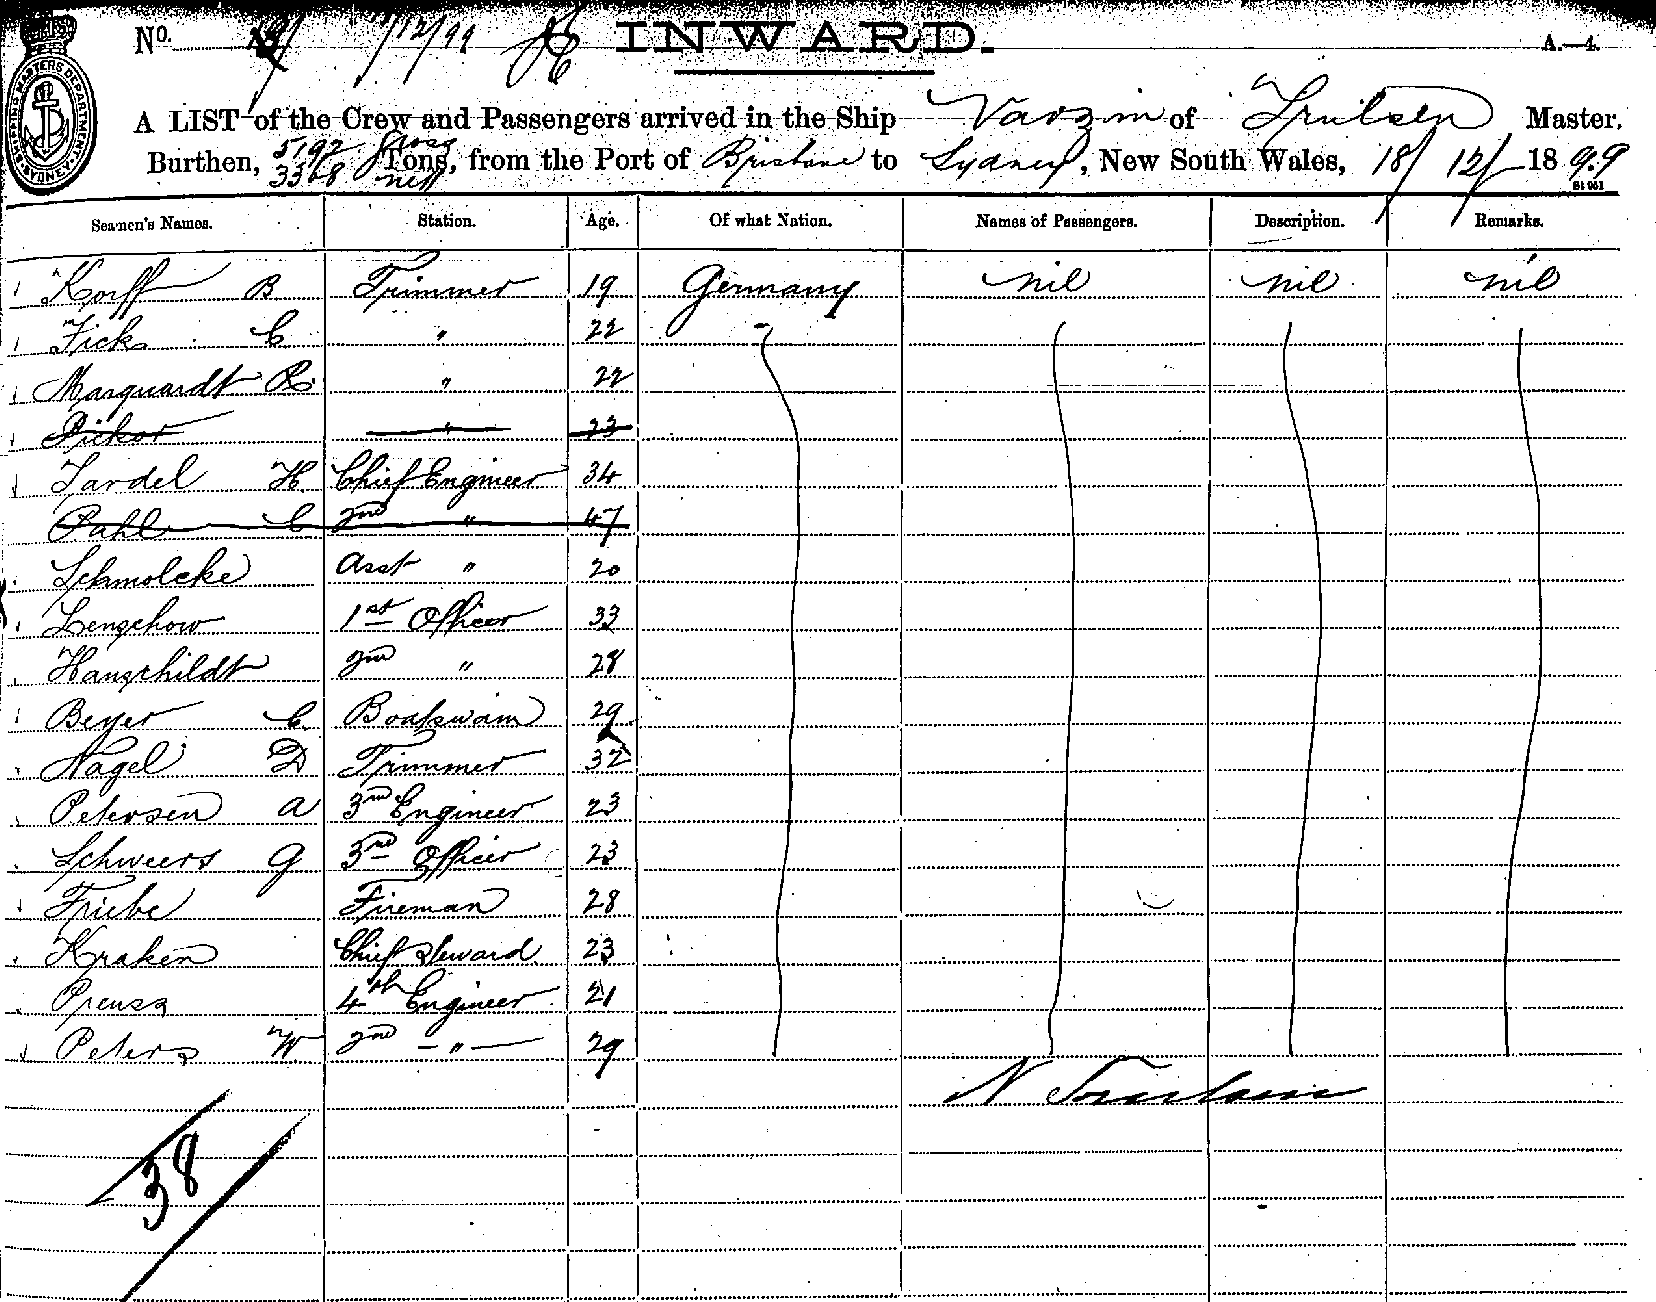 No. 7/12/99 INWARD. A.—4.
SHIPPING MASTERS DEPARTMENT SYDNEY
A LIST of the Crew and Passengers arrived in the Ship Varzin of Master.
Burthen, 5192 gross 3368 nett Tons, from the Port of Brisbane to Sydney, New South Wales, 18/12/1899
Seamen's Names. Station. Age. Of what Nation. Names of Passengers. Description. Remarks.
Korff B Trimmer 19 Germany nil nil nil
Fick C " 22
Marquardt R " 22
Pickor " 23
Tardel H Chief Engineer 34
Pahl C 2nd " 47
Schmolcke Asst " 20
Lengchow 1st Officer 33
Hauschildt 2nd " 28
Beyer C Boatswain 29
Nagel D Trimmer 32
Petersen A 3rd Engineer 23
Schweers G 3rd Officer 23
Friebe Fireman 28
Kraken Chief Steward 23
Preuss 4th Engineer 21
Peters W 2nd — " — 29
N
38